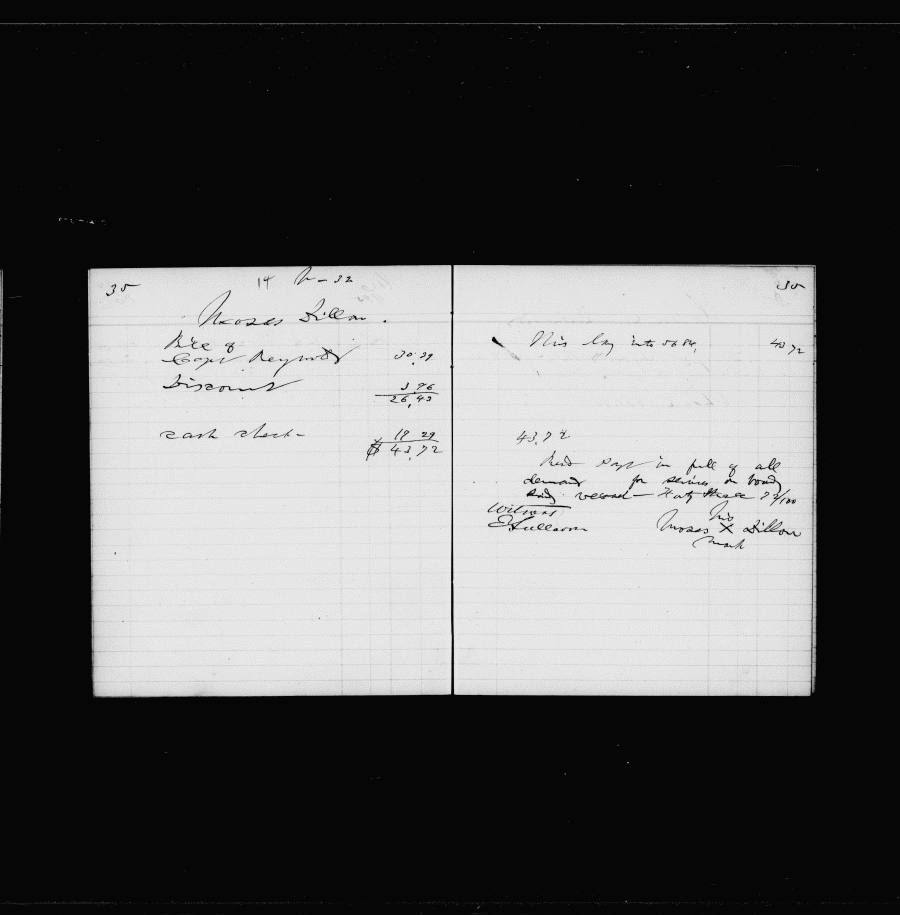 35
14
Moses Dillon.
Bill of
Capt Reynolds 30.39
Discount 3.96
26.43
cash check- 19 29
$ 43.72
35
His lay 43 72
43.72
Recd Payt in full of all
demands for services on board
said vessel - Forty three 72/100
Witness
his
Moses X Dillon
mark